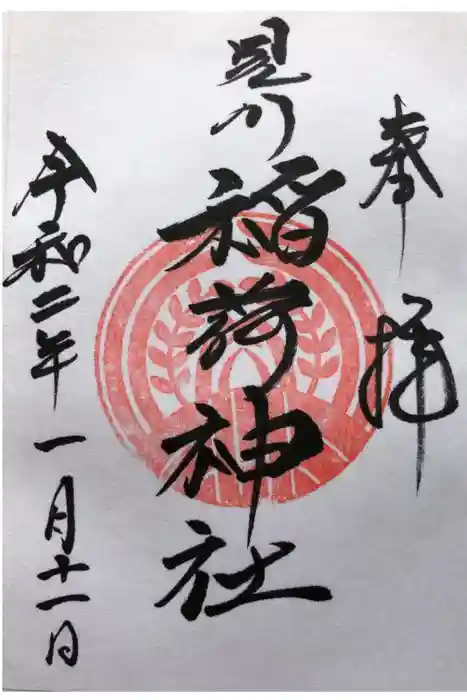 奉拝
稲荷神社
令和二年一月十一日